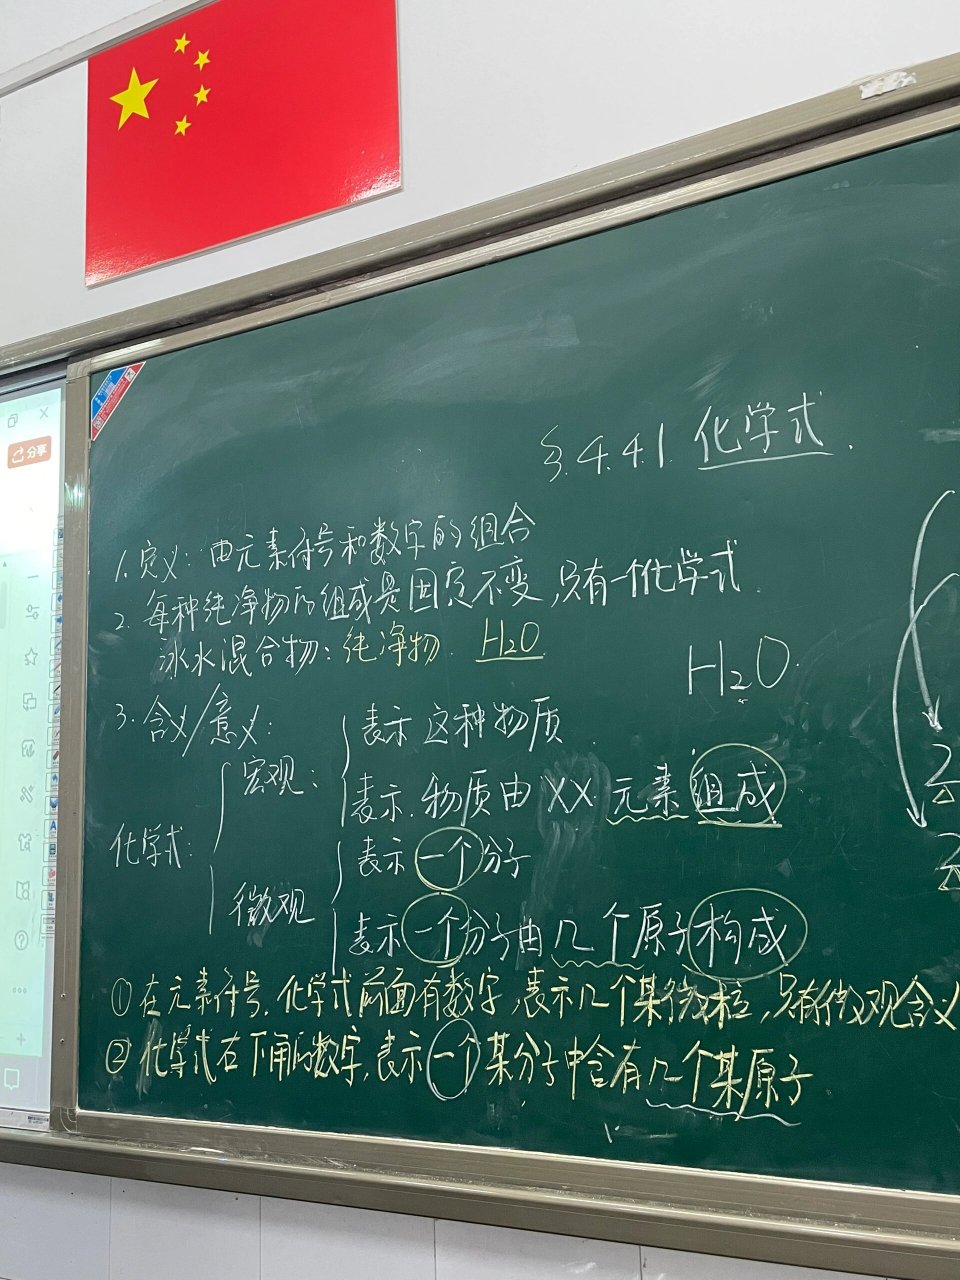 分享
§.4.4.1. 化学式.
1. 定义: 由元素符号和数字的组合
2. 每种纯净物的组成是固定不变,只有一个化学式.
冰水混合物: 纯净物. H₂O
H₂O
3. 含义/意义:
化学式:
宏观:
表示这种物质
表示.物质由XX.元素组成
微观
表示一个分子
表示一个分子由几个原子构成
①在元素符号.化学式前面有数字,表示几个某微粒,只有微观含义
②化学式右下角的数字,表示一个某分子中含有几个某原子
2
2